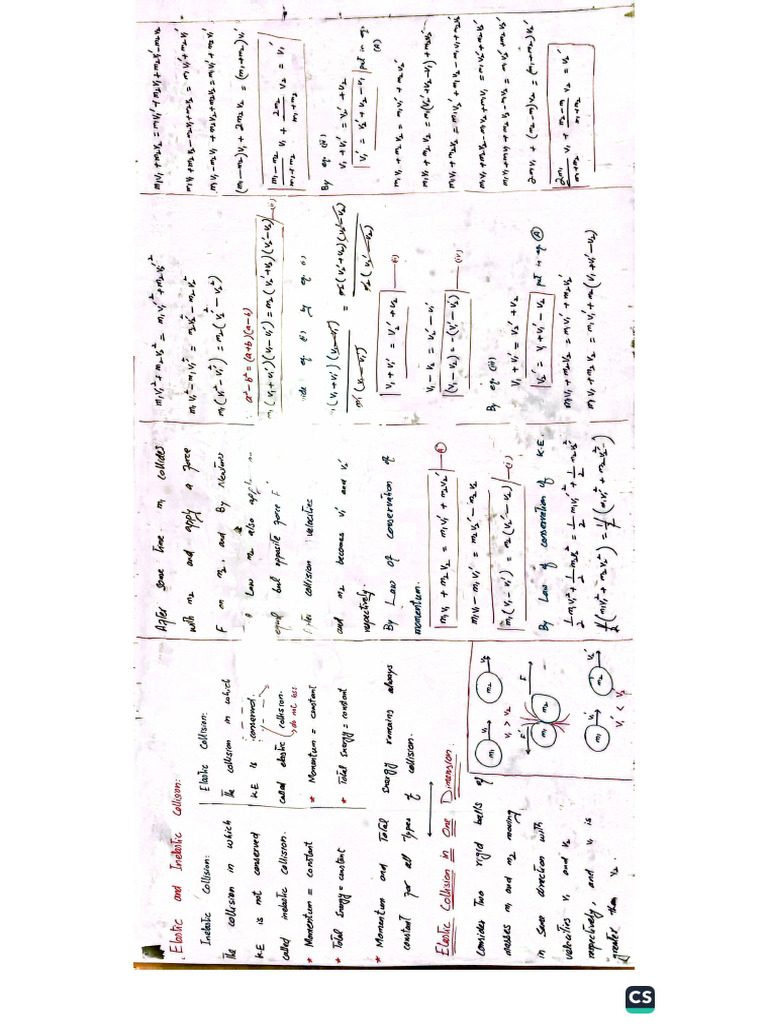 Elastic and Inelastic Collision:
Inelastic Collision:
The collision in which
KE is not conserved
called inelastic collision.
* Momentum = constant
* Total Energy = constant
Elastic Collision:
The collision in which
KE is conserved.
called elastic collision.
↳ do not loss
* Momentum = constant
* Total Energy = constant
* Momentum and Total Energy remains always
constant for all types of collision.
Elastic Collision in One Dimension.
Consider Two rigid balls of
masses m₁ and m₂ moving
in same direction with
velocities v₁ and v₂
respectively, and v₁ is
greater than v₂.
m₁ v₁ m₂ v₂
v₁ > v₂
F' F
m₁ m₂
m₁ v₁' m₂ v₂'
v₁' < v₂'
After some time m₁ collides
with m₂ and apply a force
F on m₂, and By Newton's
Law m₂ also apply
equal but opposite force F'
After collision velocities
and m₂ becomes v₁' and v₂'
respectively.
By Law of conservation of
momentum.
m₁v₁ + m₂v₂ = m₁v₁' + m₂v₂' —(A)
m₁v₁ - m₁v₁' = m₂v₂' - m₂v₂
m₁(v₁ - v₁') = m₂(v₂' - v₂) —(i)
By Law of conservation of K.E.
½m₁v₁² + ½m₂v₂² = ½m₁v₁'² + ½m₂v₂'²
½(m₁v₁² + m₂v₂²) = ½(m₁v₁'² + m₂v₂'²)
m₁v₁² + m₂v₂² = m₁v₁'² + m₂v₂'²
m₁v₁² - m₁v₁'² = m₂v₂'² - m₂v₂²
m₁(v₁² - v₁'²) = m₂(v₂'² - v₂²)
∵ a² - b² = (a+b)(a-b)
m₁(v₁ + v₁')(v₁ - v₁') = m₂(v₂' + v₂)(v₂' - v₂) —(ii)
eq (ii) by eq (i)
m₁(v₁ + v₁')(v₁ - v₁') = m₂(v₂' + v₂)(v₂' - v₂)
m₁(v₁ - v₁') m₂(v₂' - v₂)
v₁ + v₁' = v₂' + v₂ —(iii)
v₁ - v₂ = v₂' - v₁'
(v₁ - v₂) = -(v₁' - v₂') —(iv)
By eq (iii)
v₁ + v₁' = v₂' + v₂
v₂' = v₁ + v₁' - v₂ put in eq (A)
m₁v₁ + m₂v₂ = m₁v₁' + m₂v₂'
m₁v₁ + m₂v₂ = m₁v₁' + m₂(v₁ + v₁' - v₂)
m₁v₁ + m₂v₂ = m₁v₁' + m₂v₁ + m₂v₁' - m₂v₂
m₁v₁ + m₂v₂ - m₂v₁ + m₂v₂ = m₁v₁' + m₂v₁'
m₁v₁ - m₂v₁ + m₂v₂ + m₂v₂ = m₁v₁' + m₂v₁'
(m₁ - m₂)v₁ + 2m₂v₂ = (m₁ + m₂)v₁'
m₁ - m₂ / m₁ + m₂ v₁ + 2m₂ / m₁ + m₂ v₂ = v₁'
By eq (iii)
v₁ + v₁' = v₂' + v₂
v₁' = v₂' + v₂ - v₁ put in eq. (A)
m₁v₁ + m₂v₂ = m₁v₁' + m₂v₂'
m₁v₁ + m₂v₂ = m₁(v₂' + v₂ - v₁) + m₂v₂'
m₁v₁ + m₂v₂ = m₁v₂' + m₁v₂ - m₁v₁ + m₂v₂'
m₁v₁ + m₂v₂ - m₁v₂ + m₁v₁ = m₁v₂' + m₂v₂'
m₁v₁ + m₁v₁ + m₂v₂ - m₁v₂ = m₁v₂' + m₂v₂'
2m₁v₁ + (m₂ - m₁)v₂ = (m₁ + m₂)v₂'
2m₁ / m₁ + m₂ v₁ + m₂ - m₁ / m₁ + m₂ v₂ = v₂'
CS